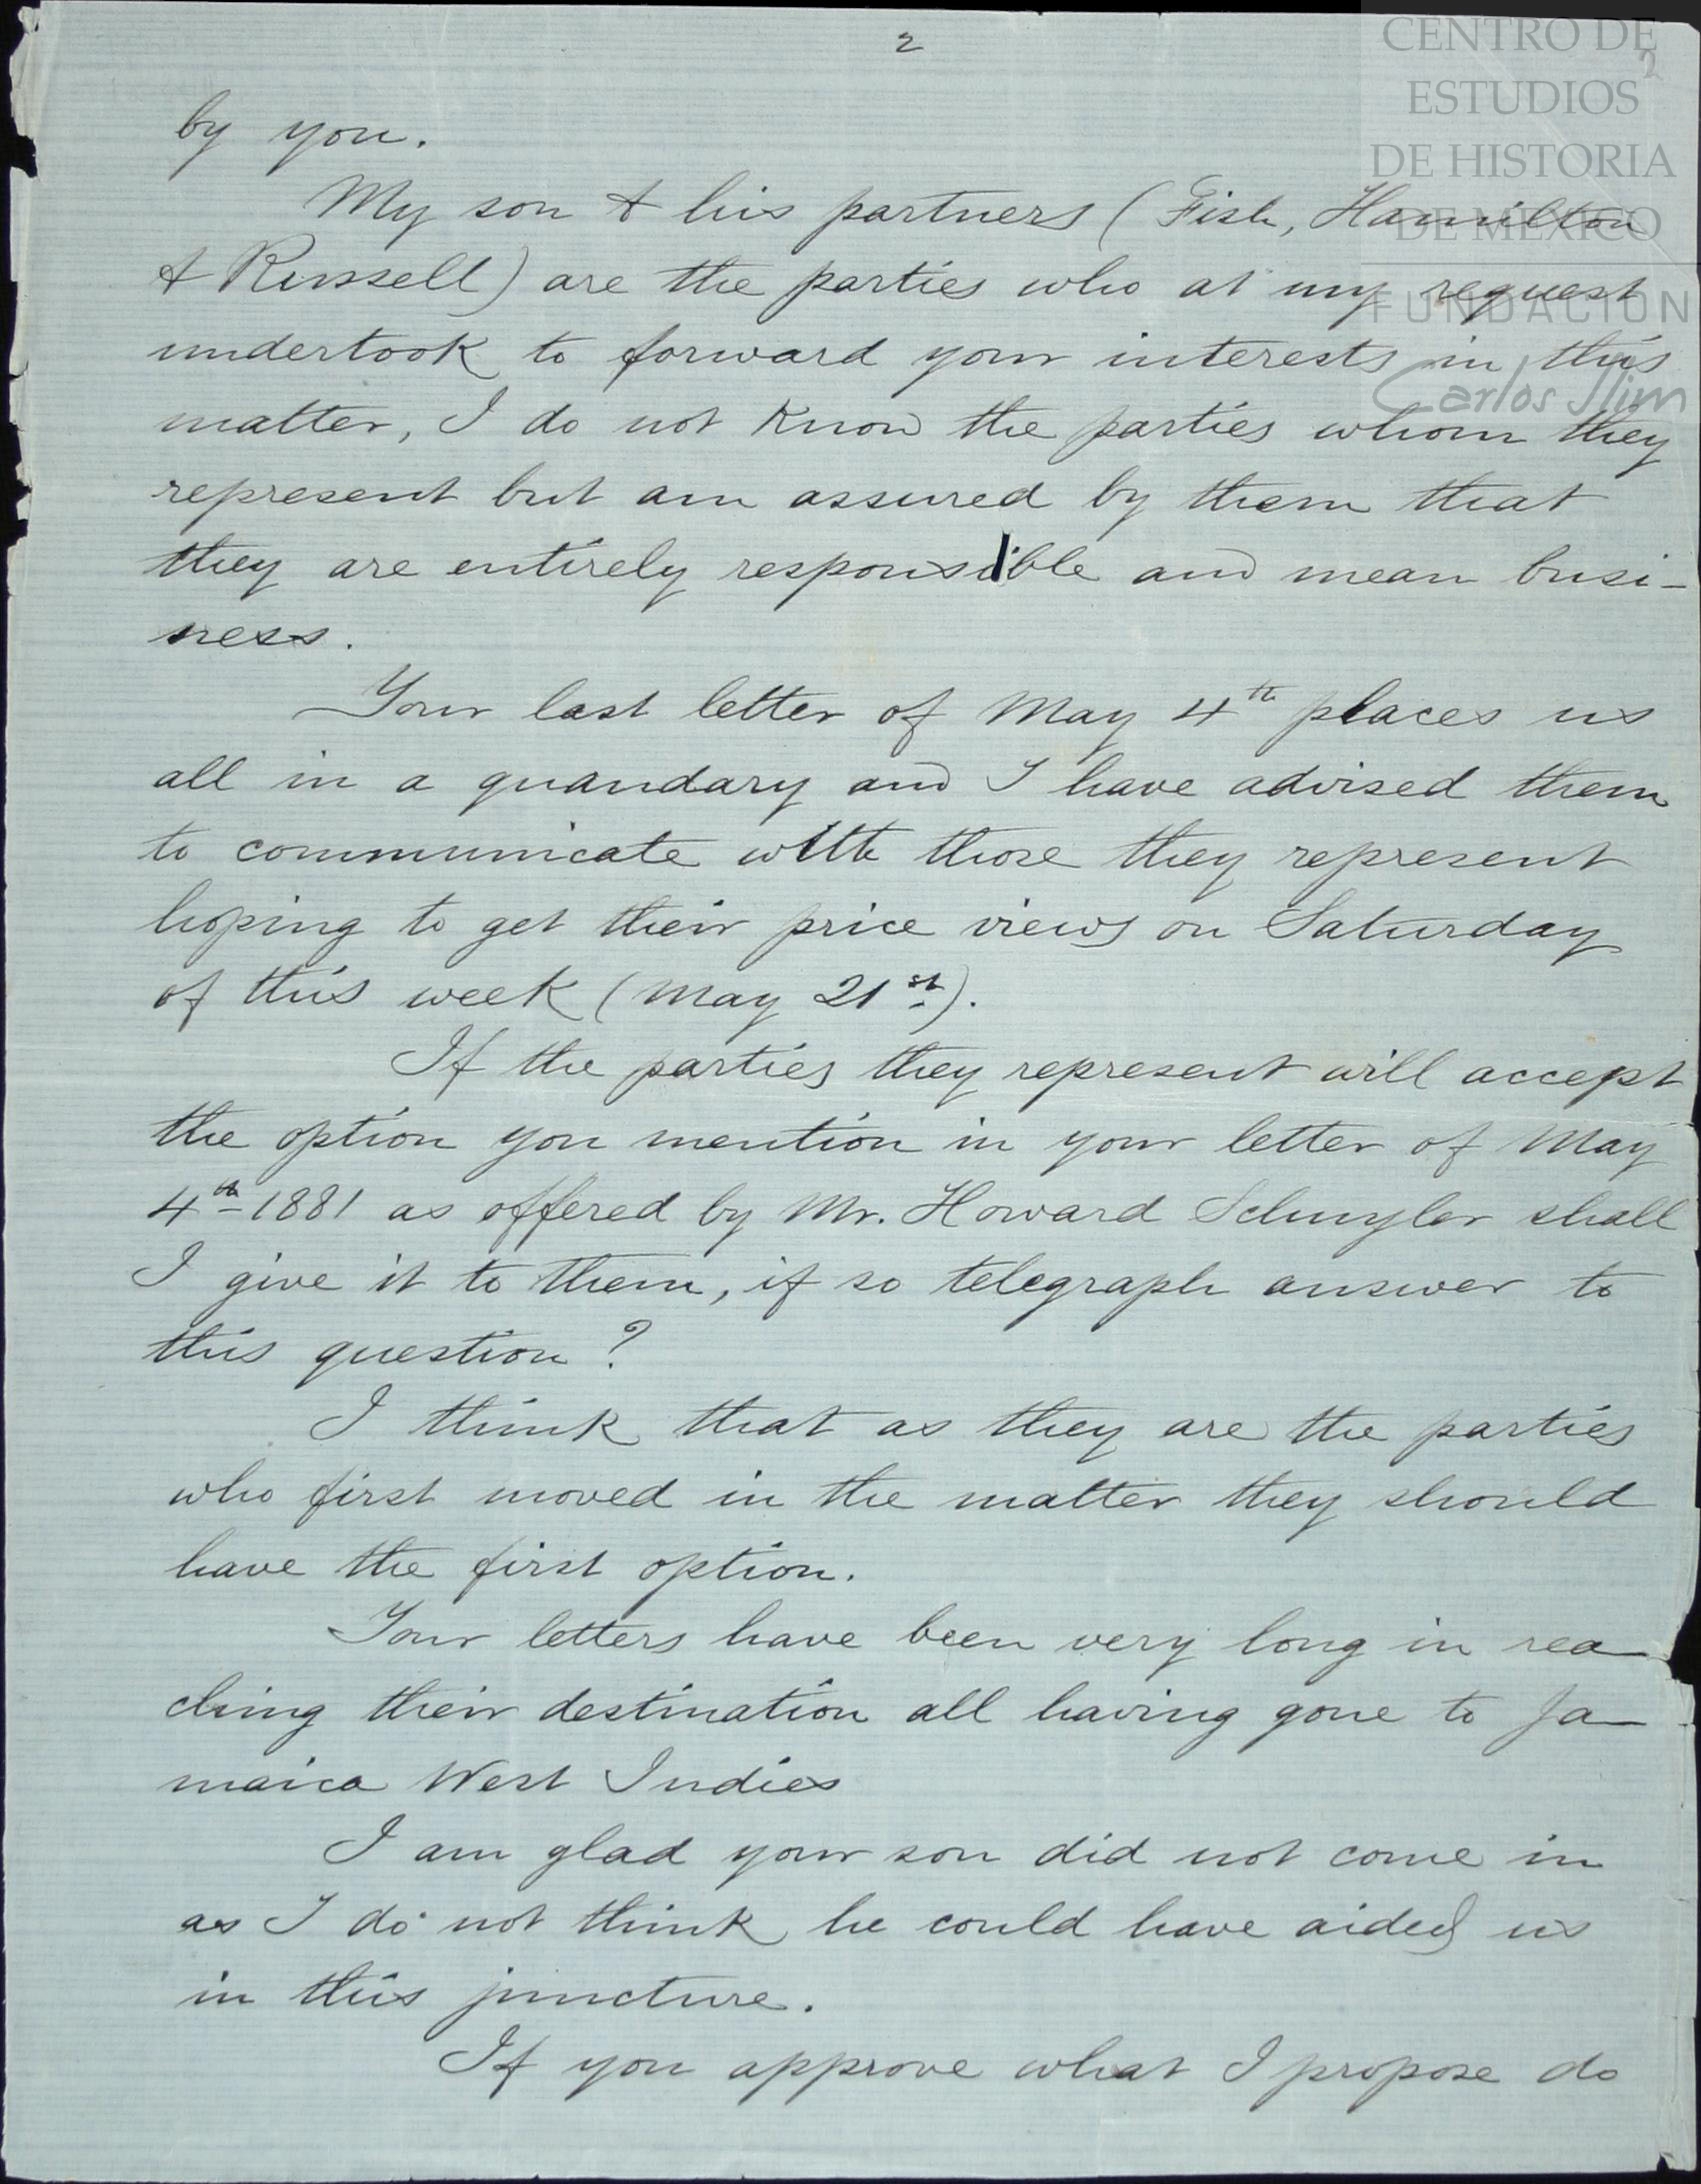 2
2
CENTRO DE
ESTUDIOS
DE HISTORIA
DE MÉXICO
FUNDACIÓN
Carlos Slim
by you.
My son & his partners (Fish, Hamilton
& Russell) are the parties who at my request
undertook to forward your interests in this
matter, I do not know the parties whom they
represent but am assured by them that
they are entirely responsible and mean busi-
ness.
Your last letter of May 4th places us
all in a quandary and I have advised them
to communicate with those they represent
hoping to get their price views on Saturday
of this week (May 21st).
If the parties they represent will accept
the option you mention in your letter of May
4th 1881 as offered by Mr. Howard Schuyler shall
I give it to them, if so telegraph answer to
this question?
I think that as they are the parties
who first moved in the matter they should
have the first option.
Your letters have been very long in rea
ching their destination all having gone to Ja
maica West Indies
I am glad your son did not come in
as I do not think he could have aided us
in this juncture.
If you approve what I propose do